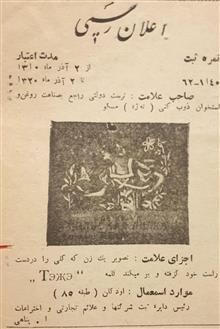 اعلان رسمی
نمره ثبت
مدت اعتبار
۶۲-۱/۴۰
از ۲ آذر ماه ۱۳۱۰
تا ۲ آذر ماه ۱۳۲۰
صاحب علامت : تریست دولتی راجع بصناعت روغن و
استخوان ذوب کنی ( تهژه ) مسکو
اجزای علامت : تصویر یك زن که گلی را دردست
راست خود گرفته و بو میکند کلمه „Тэжэ“
موارد استعمال : اودکلن ( طبقه ۸۵ )
رئیس دایره ثبت شرکتها و علائم تجارتی و اختراعات